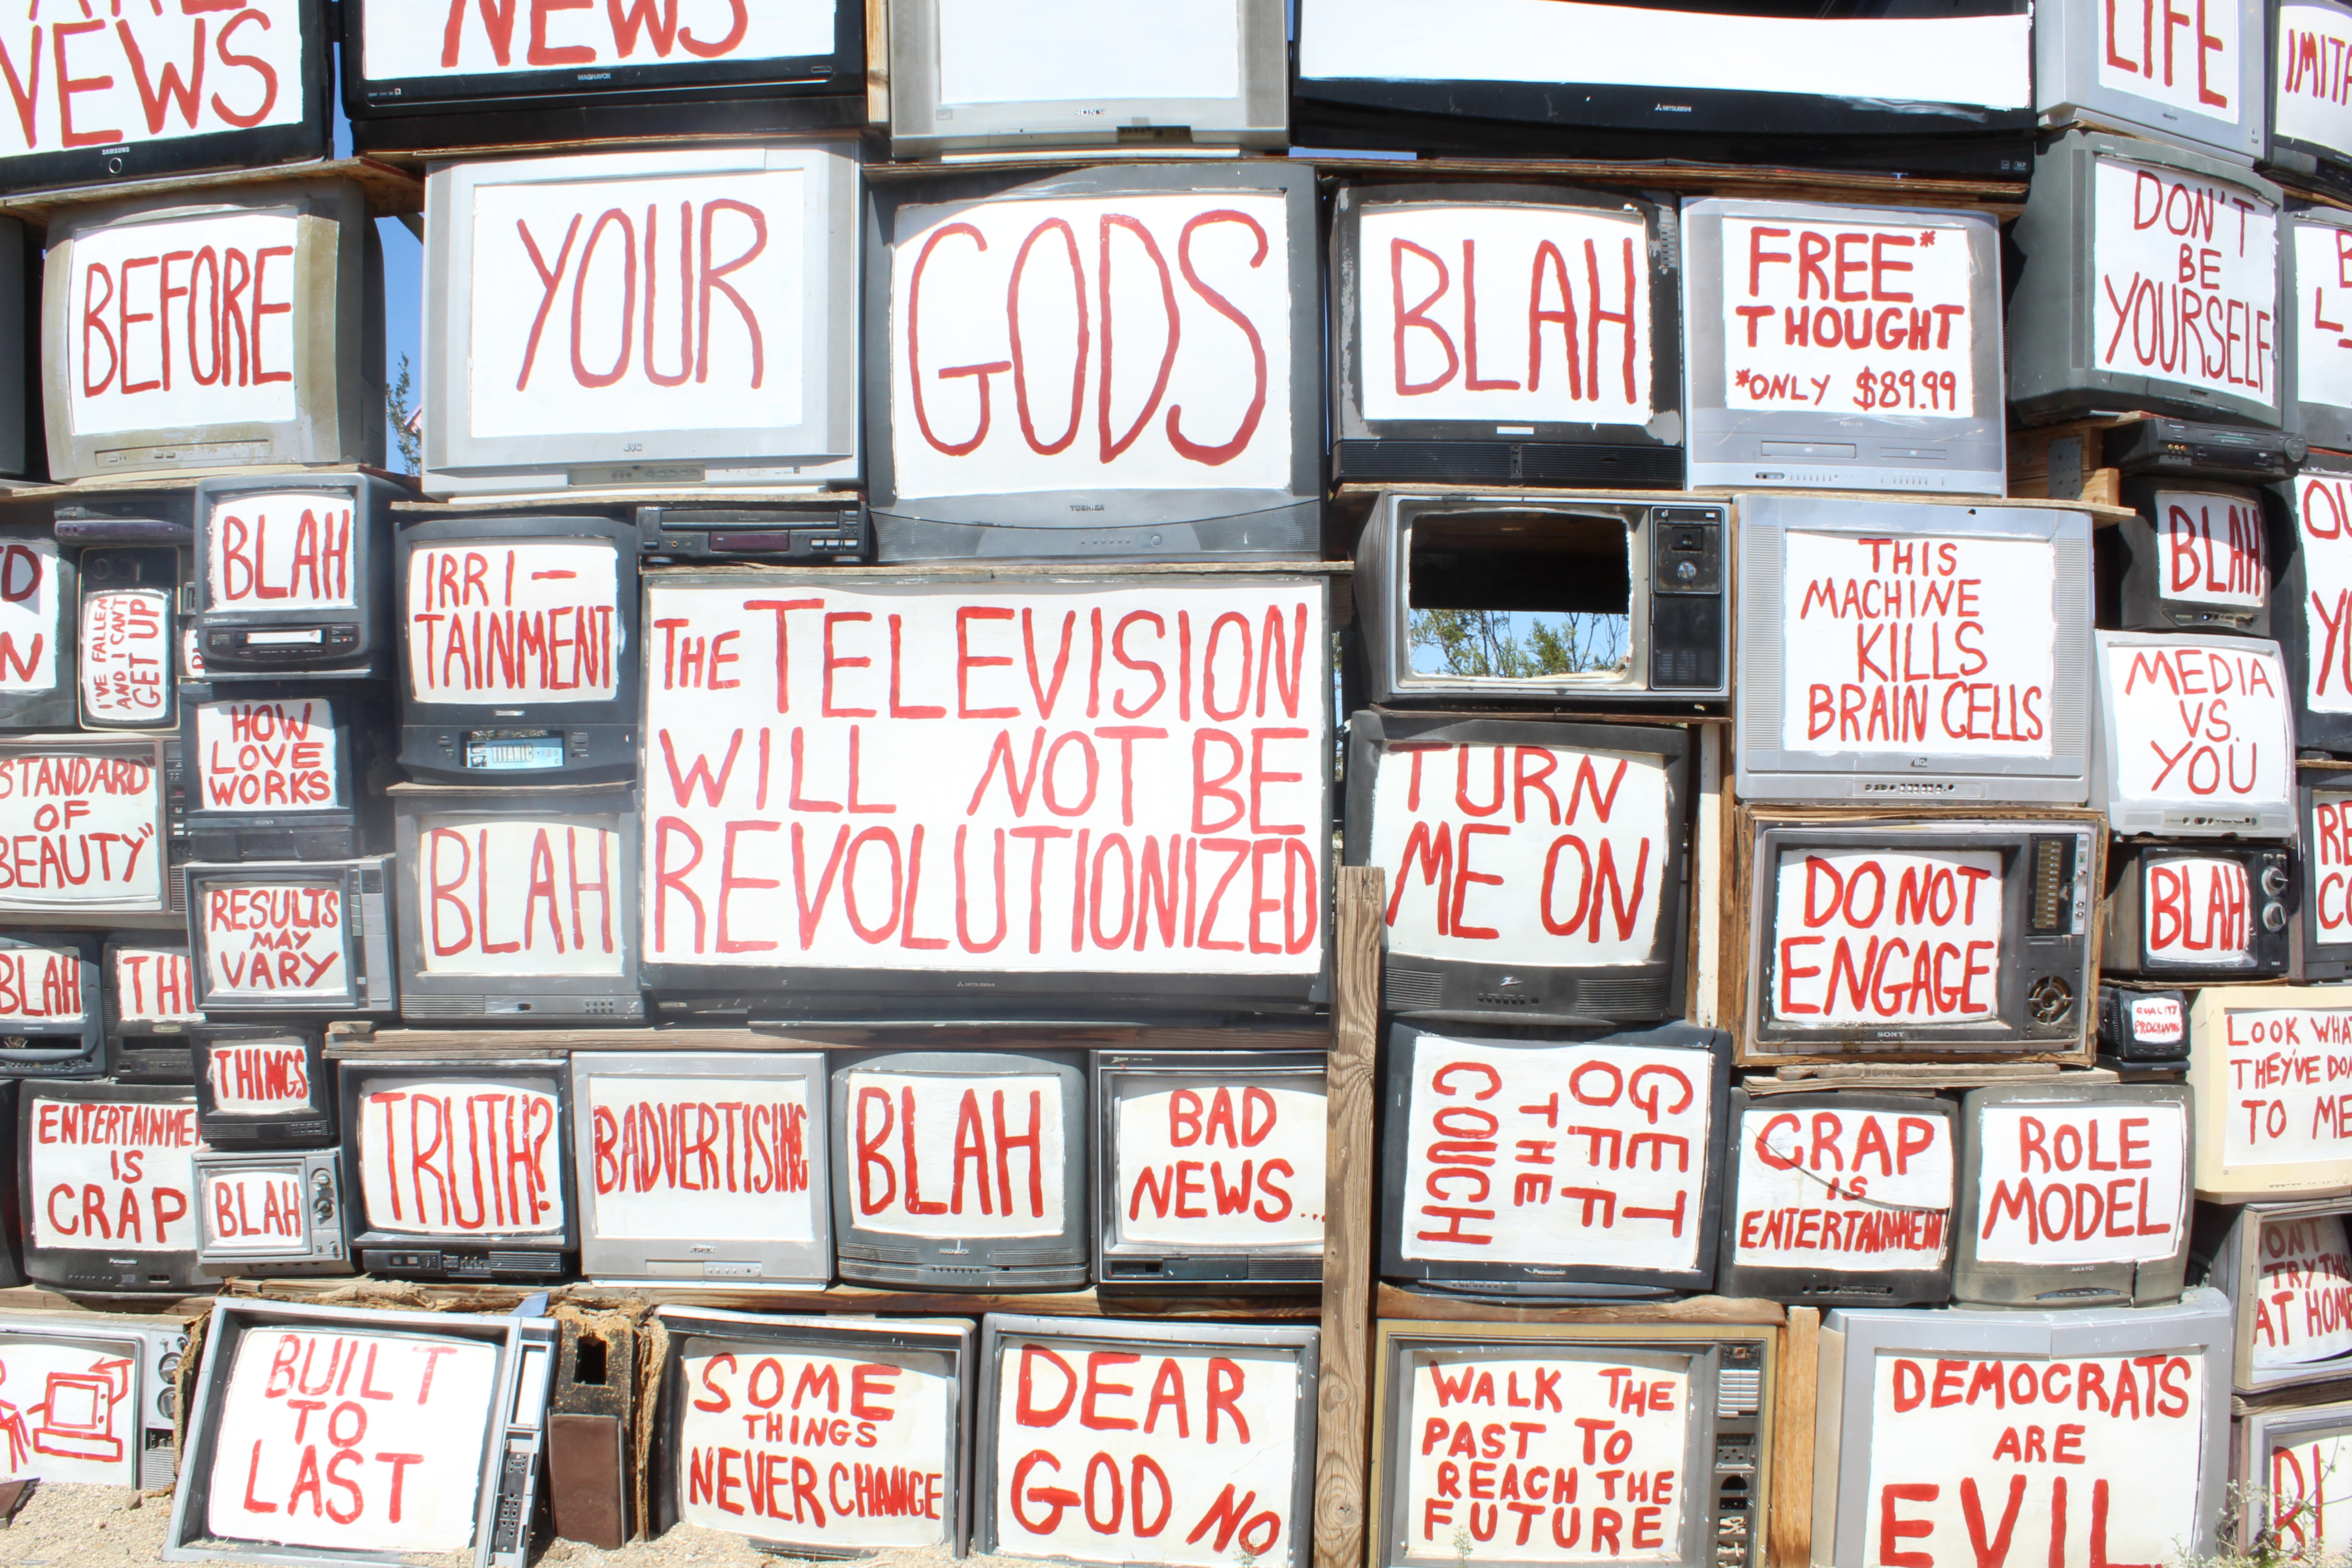 NEWS
NEWS
LIFE
SAMSUNG
MAGNAVOX
SONY
MITSUBISHI
BEFORE
YOUR
GODS
BLAH
FREE*
THOUGHT
*ONLY $89.99
DON'T
BE
YOURSELF
JVC
TOSHIBA
BLAH
I'VE FALLEN
AND I CAN'T
GET UP
IRRI-
TAINMENT
TITANIC
THE TELEVISION
WILL NOT BE
REVOLUTIONIZED
MITSUBISHI
THIS
MACHINE
KILLS
BRAIN CELLS
BLAH
MEDIA
VS.
YOU
STANDARD
OF
BEAUTY"
HOW
LOVE
WORKS
SONY
BLAH
TURN
ME ON
DO NOT
ENGAGE
SONY
BLAH
RESULTS
MAY
VARY
BLAH
THINGS
QUALITY
PROGRAMING
LOOK WHAT
THEY'VE DO
TO ME
ENTERTAINME
IS
CRAP
Panasonic
BLAH
TRUTH?
BADVERTISING
BLAH
MAGNAVOX
BAD
NEWS...
GET
OFF
THE
COUCH
Panasonic
CRAP
IS
ENTERTAINMENT
ROLE
MODEL
SANYO
TRY THIS
AT HOM
BUILT
TO
LAST
SOME
THINGS
NEVER CHANGE
DEAR
GOD NO
WALK THE
PAST TO
REACH THE
FUTURE
DEMOCRATS
ARE
EVIL